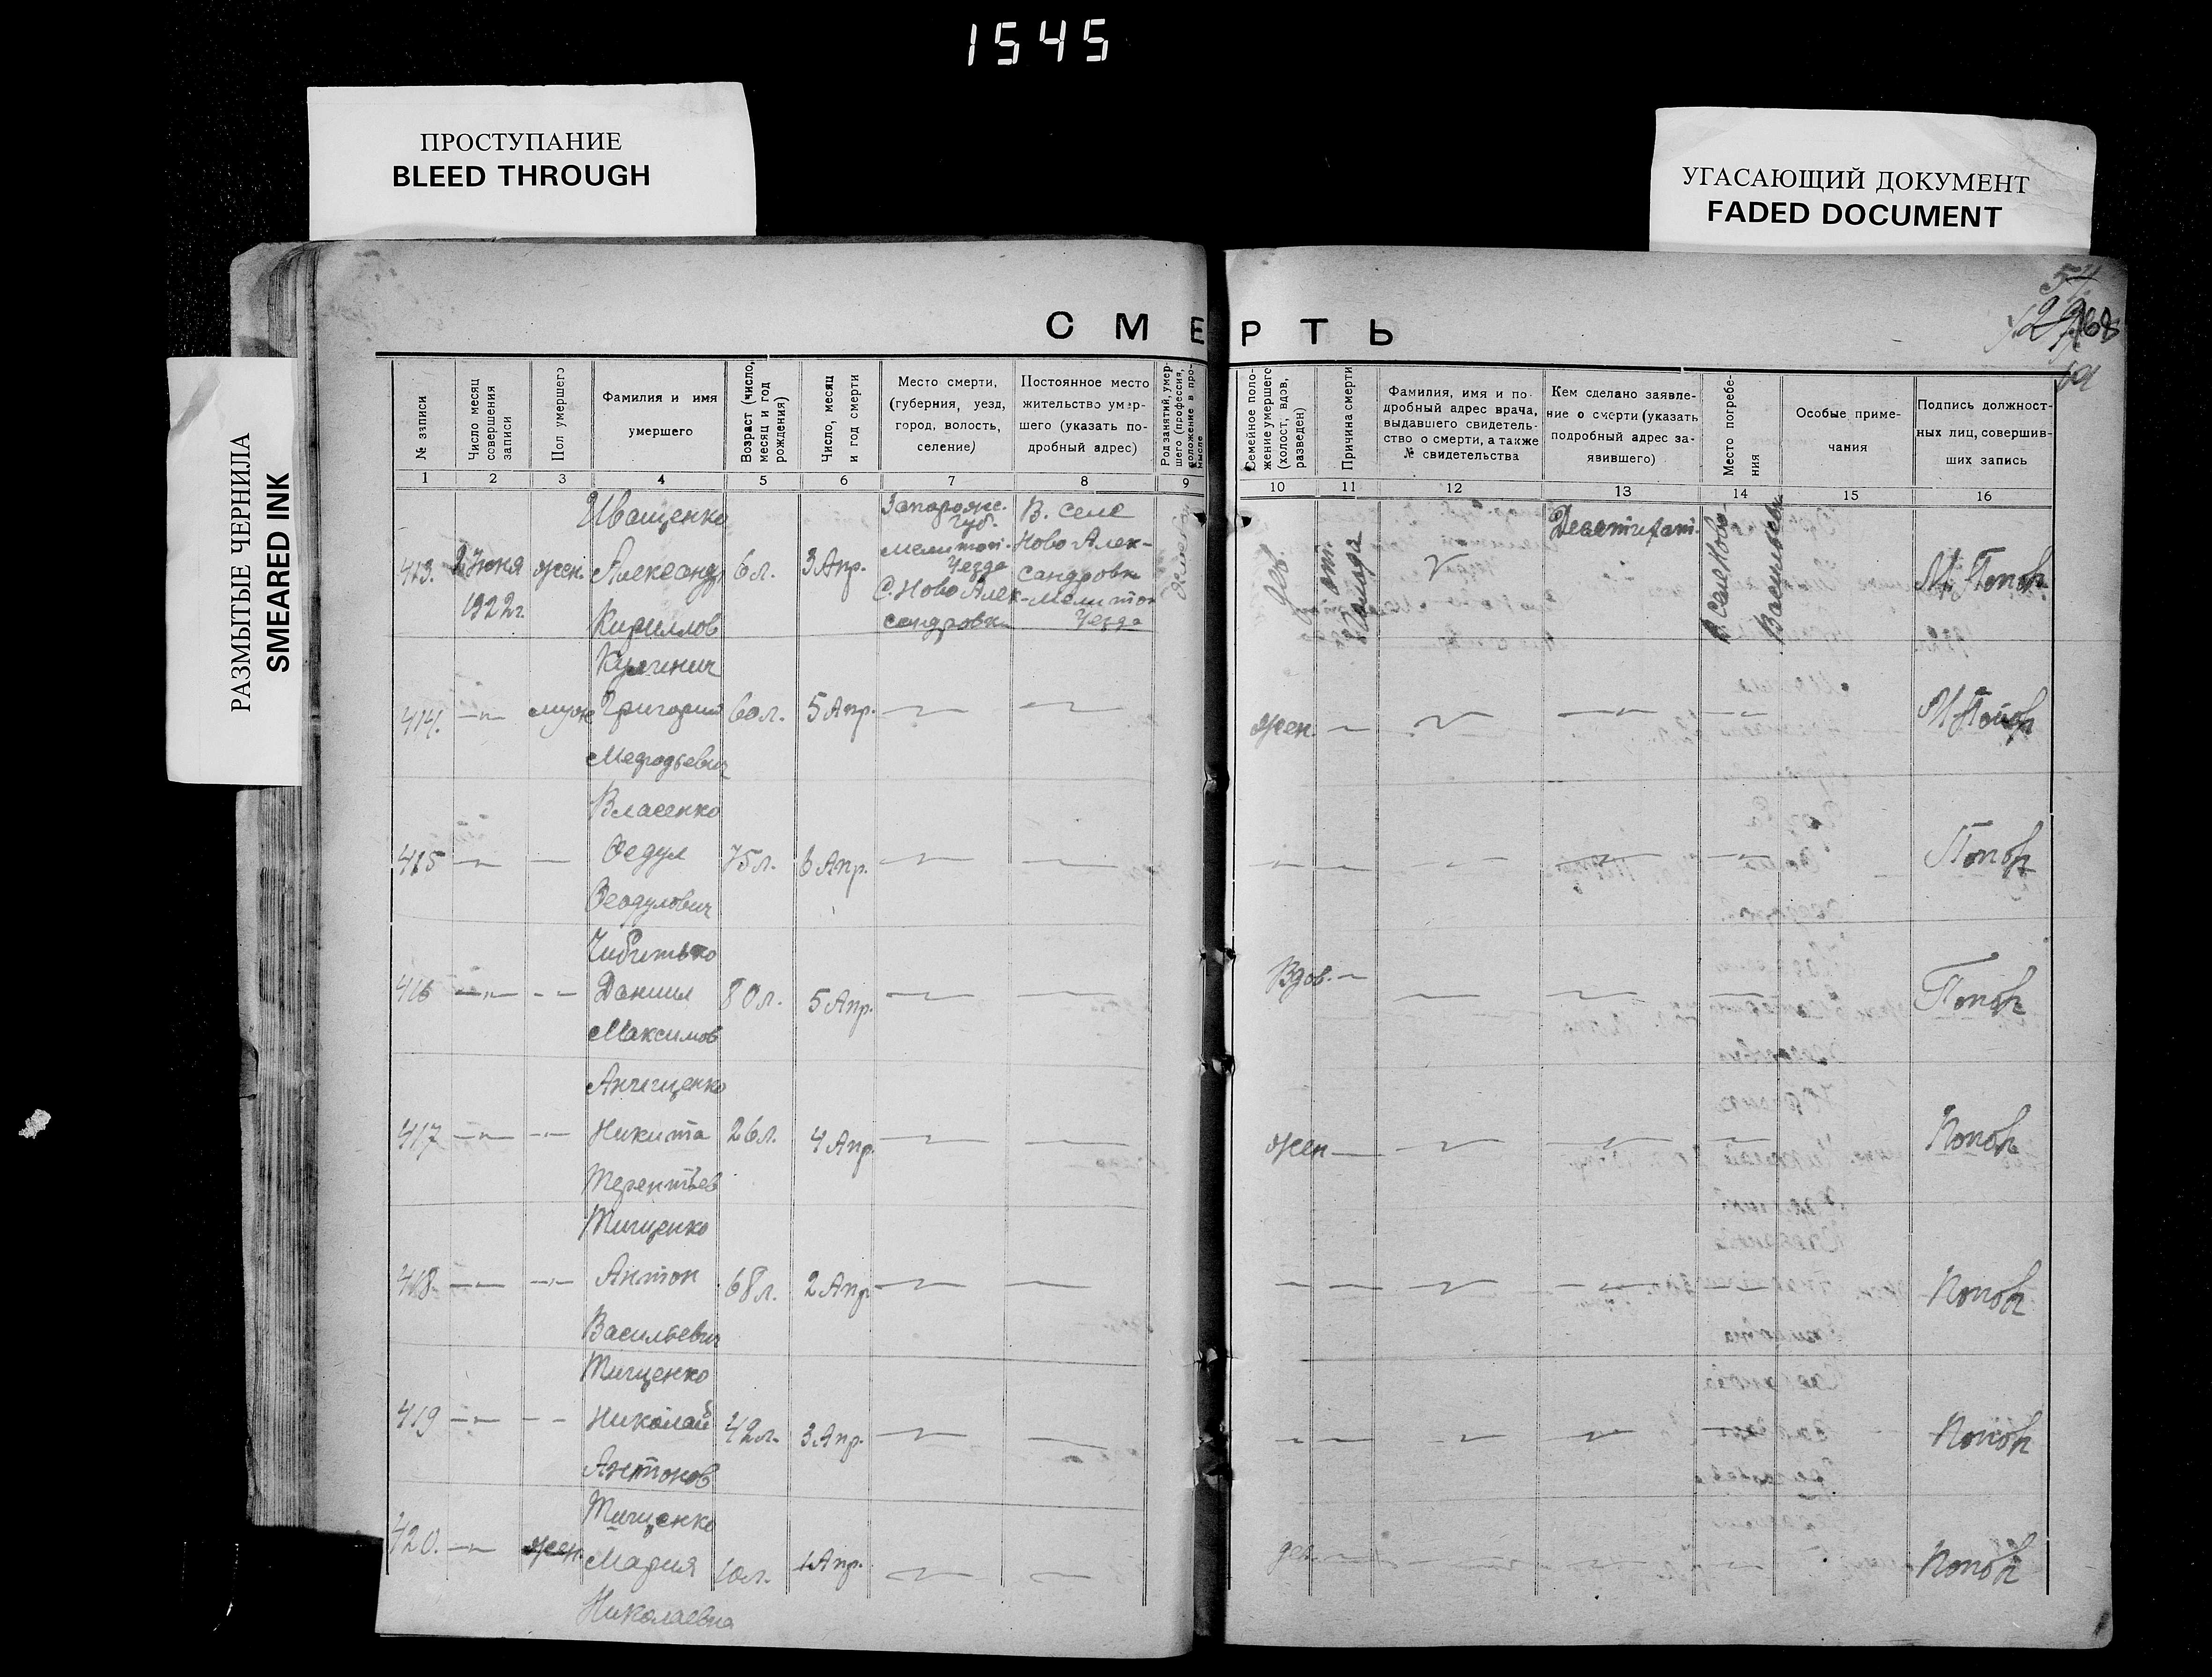 1545
ПРОСТУПАНИЕ
BLEED THROUGH
УГАСАЮЩИЙ ДОКУМЕНТ
FADED DOCUMENT
РАЗМЫТЫЕ ЧЕРНИЛА
SMEARED INK
54
СМЕРТЬ
№ записи
Число месяц совершения записи
Пол умершего
Фамилия и имя умершего
Возраст (число, месяц и год рождения)
Число, месяц и год смерти
Место смерти, (губерния, уезд, город, волость, селение)
Постоянное место жительство умершего (указать подробный адрес)
Род занятий, умершего (профессия, положение в промысле
Семейное положение умершего (холост, вдов, разведен)
Причина смерти
Фамилия, имя и подробный адрес врача, выдавшего свидетельство о смерти, а также № свидетельства
Кем сделано заявление о смерти (указать подробный адрес заявившего)
Место погребения
Особые примечания
Подпись должностных лиц, совершивших запись
1 2 3 4 5 6 7 8 9 10 11 12 13 14 15 16
413. 2 Июня 1922г. жен. Иващенко Александр Кириллов 6 л. 3 Апр. Запорожс. губ. Мелитоп. Уезда С. Ново Александровк В. селе Ново Александровк Мелитоп Уезда дев. от голода В селе Ново-Васильевк М. Попов
414. —„— муж Григорий Мефодьевич 60 л. 5 Апр. жен М Попов
415 — — Власенко Федул Феодулович 75 л. 6 Апр. Попов
416 —„— - - Даниил Максимов 80 л. 5 Апр. Вдов. Попов
417 —„— —„— Никита Терентьев 26 л. 4 Апр. жен Попов
418. —„— —„— Тищенко Антон Васильевич 68 л. 2 Апр Попов
419 —„— - - Тищенко Николай Антонов 42 л. 3 Апр. Попов
420. —„— жен. Тищенко Мария Николаевна 10 л. 1 Апр. дев. Попов